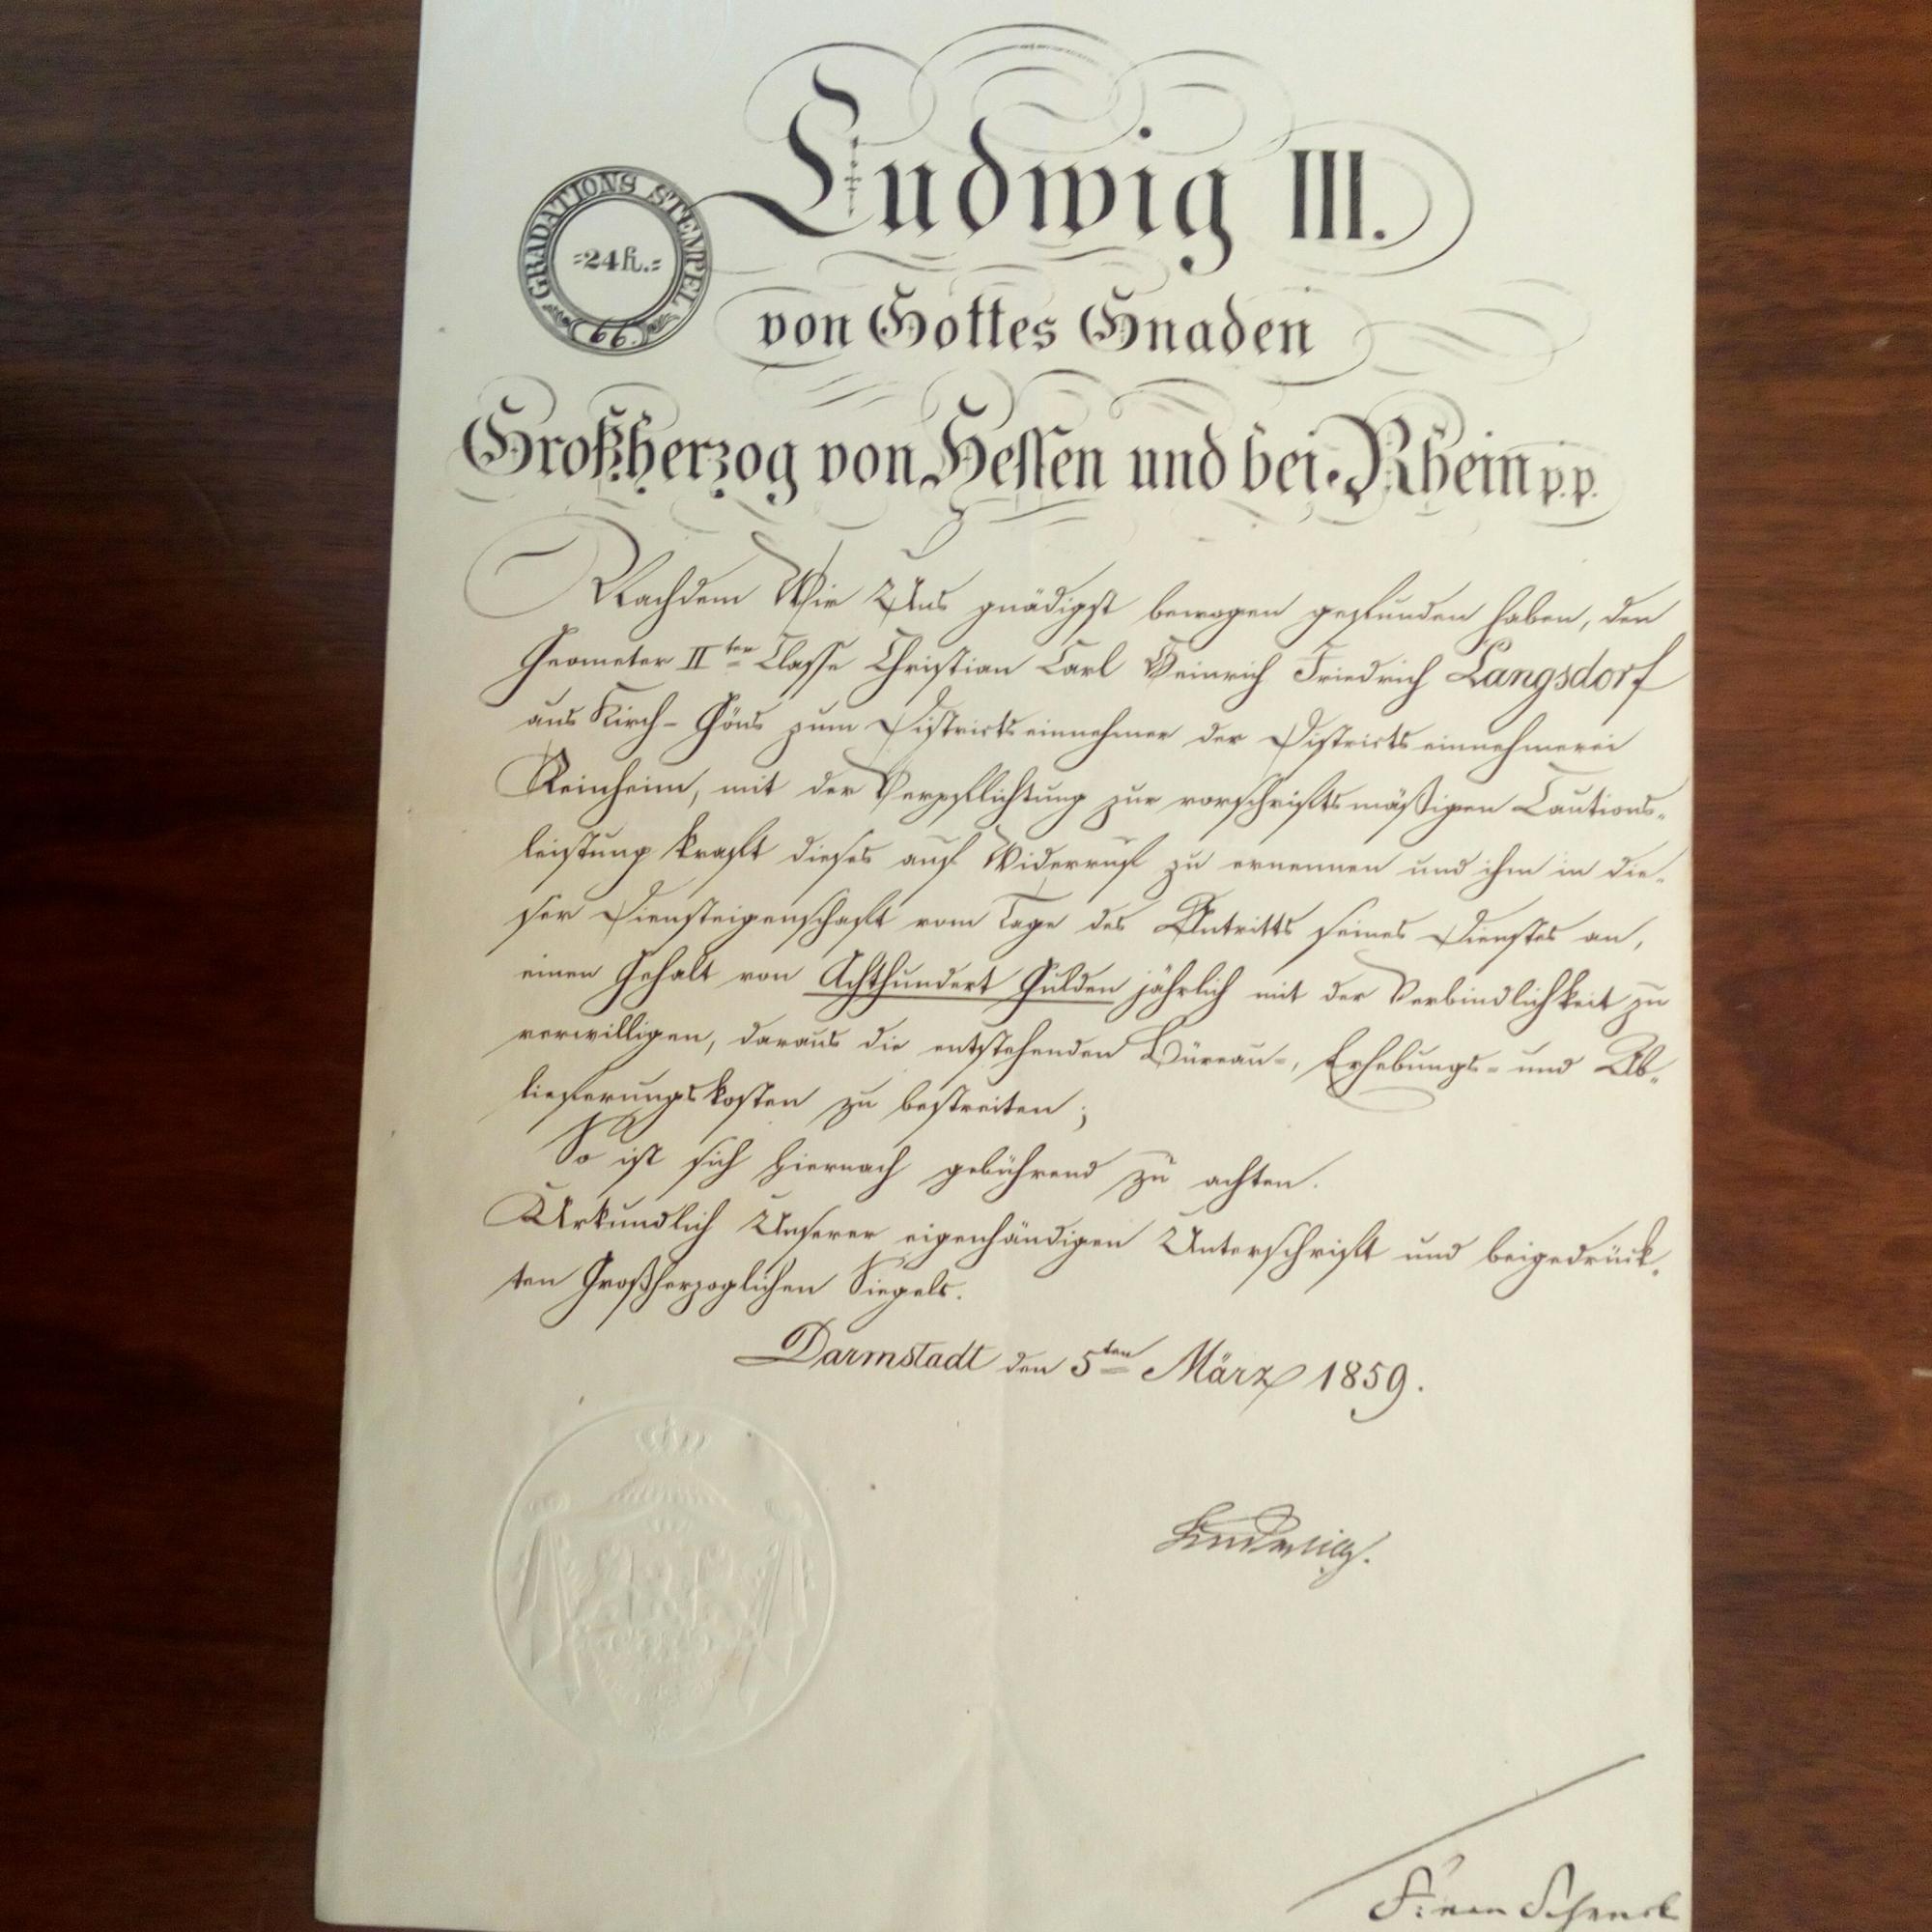 Ludwig III.
GRADATIONS STEMPEL
=24 fl.=
66.
von Gottes Gnaden
Großherzog von Hessen und bei Rhein p.p.
Nachdem Wir Uns gnädigst bewogen gefunden haben, den
Geometer IIter Classe Christian Carl Heinrich Friedrich Langsdorf
aus Kirch-Göns zum Districtseinnehmer der Districtseinnehmerei
Reinheim, mit der Verpflichtung zur vorschriftsmäßigen Cautions-
leistung kraft dieses auf Widerruf zu ernennen und ihm in die-
ser Diensteigenschaft vom Tage des Antritts seines Dienstes an,
einen Gehalt von Achthundert Gulden jährlich mit der Verbindlichkeit zu
verwilligen, daraus die entstehenden Büreau-, Erhebungs- und Ab-
lieferungskosten zu bestreiten;
So ist sich hiernach gebührend zu achten.
Urkundlich Unserer eigenhändigen Unterschrift und beigedrück-
ten Großherzoglichen Siegels.
Darmstadt den 5ten März 1859.
Ludwig.
Schenck